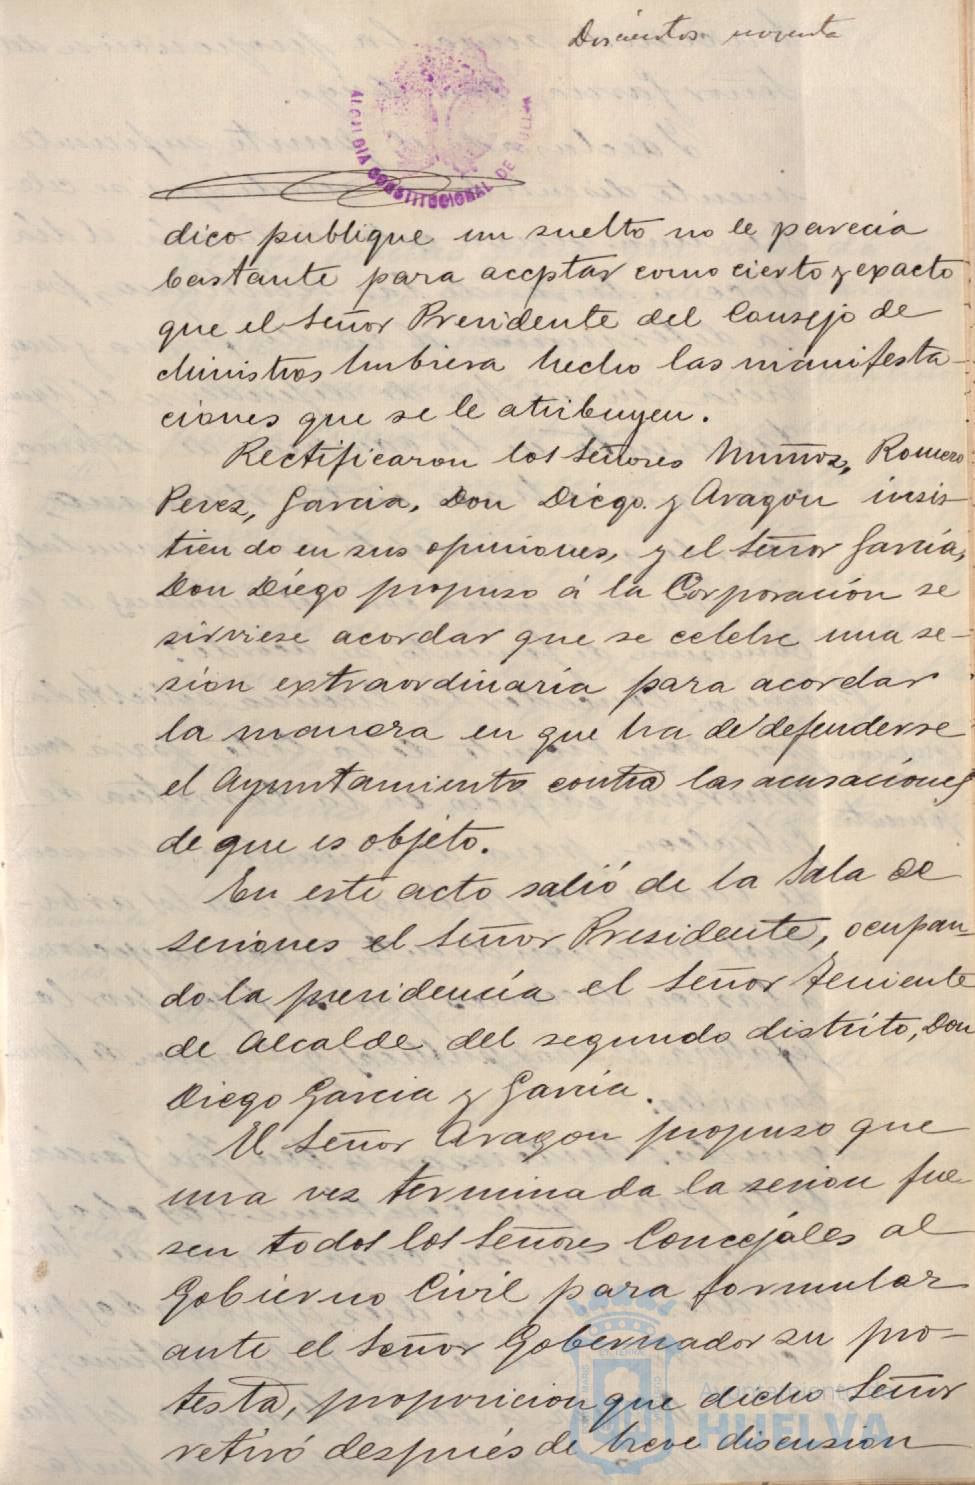 Doscientos noventa
ALCALDIA CONSTITUCIONAL DE HUELVA
dico publique un suelto no le parecia
bastante para aceptar como cierto y exacto
que el Señor Presidente del Consejo de
Ministros hubiera hecho las manifesta-
ciones que se le atribuyen.
Rectificaron los Señores Muñoz, Romero
Perez, Garcia, Don Diego y Aragon insis-
tiendo en sus opiniones, y el Señor García,
Don Diego propuso á la Corporación se
sirviese acordar que se celebre una se-
sion extraordinaria para acordar
la manera en que ha de defenderse
el Ayuntamiento contra las acusaciones
de que es objeto.
En este acto salió de la Sala de
sesiones el Señor Presidente, ocupan-
do la presidencia el Señor Teniente
de Alcalde del segundo distrito, Don
Diego Garcia y Garcia.
El Señor Aragon propuso que
una vez terminada la sesion fue-
sen todos los Señores Concejales al
Gobierno Civil para formular
ante el Señor Gobernador su pro-
testa, proposicion que dicho Señor
retiró después de breve discusion
Ayuntamiento
HUELVA